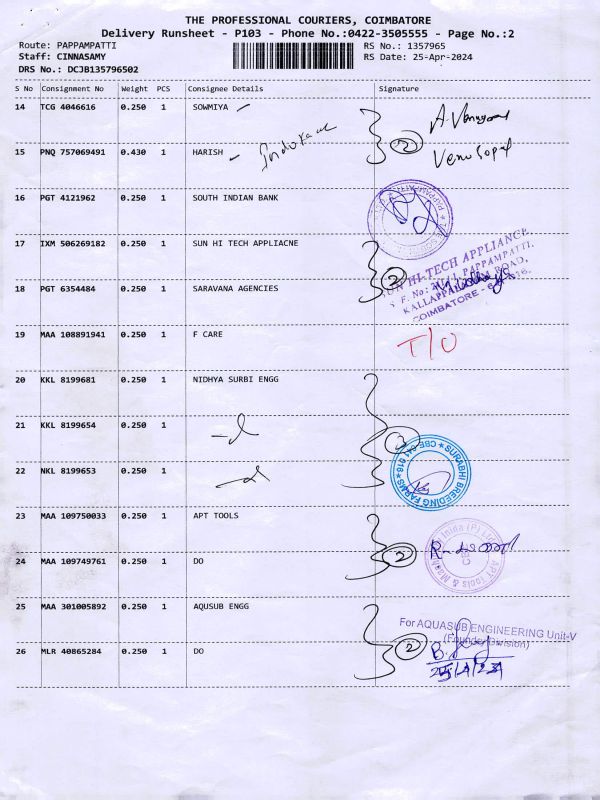 THE PROFESSIONAL COURIERS, COIMBATORE
Delivery Runsheet - P103 - Phone No.:0422-3505555 - Page No.:2
Route: PAPPAMPATTI RS No.: 1357965
Staff: CINNASAMY RS Date: 25-Apr-2024
DRS No.: DCJB135796502
S No Consignment No Weight PCS Consignee Details Signature
14 TCG 4046616 0.250 1 SOWMIYA
15 PNQ 757069491 0.430 1 HARISH 2 Venugopal
16 PGT 4121962 0.250 1 SOUTH INDIAN BANK
17 IXM 506269182 0.250 1 SUN HI TECH APPLIACNE
SUN HI-TECH APPLIANCE
18 PGT 6354484 0.250 1 SARAVANA AGENCIES 2
PAPPAMPATTI,
ROAD,
COIMBATORE -
19 MAA 108891941 0.250 1 F CARE T/O
20 KKL 8199681 0.250 1 NIDHYA SURBI ENGG
21 KKL 8199654 0.250 1 3
22 NKL 8199653 0.250 1
SURABHI BREEDING FARMS CBE-641 016
23 MAA 109750033 0.250 1 APT TOOLS
24 MAA 109749761 0.250 1 DO 2
APT Tools &
25 MAA 301005892 0.250 1 AQUSUB ENGG
For AQUASUB ENGINEERING Unit-V
26 MLR 40865284 0.250 1 DO 2